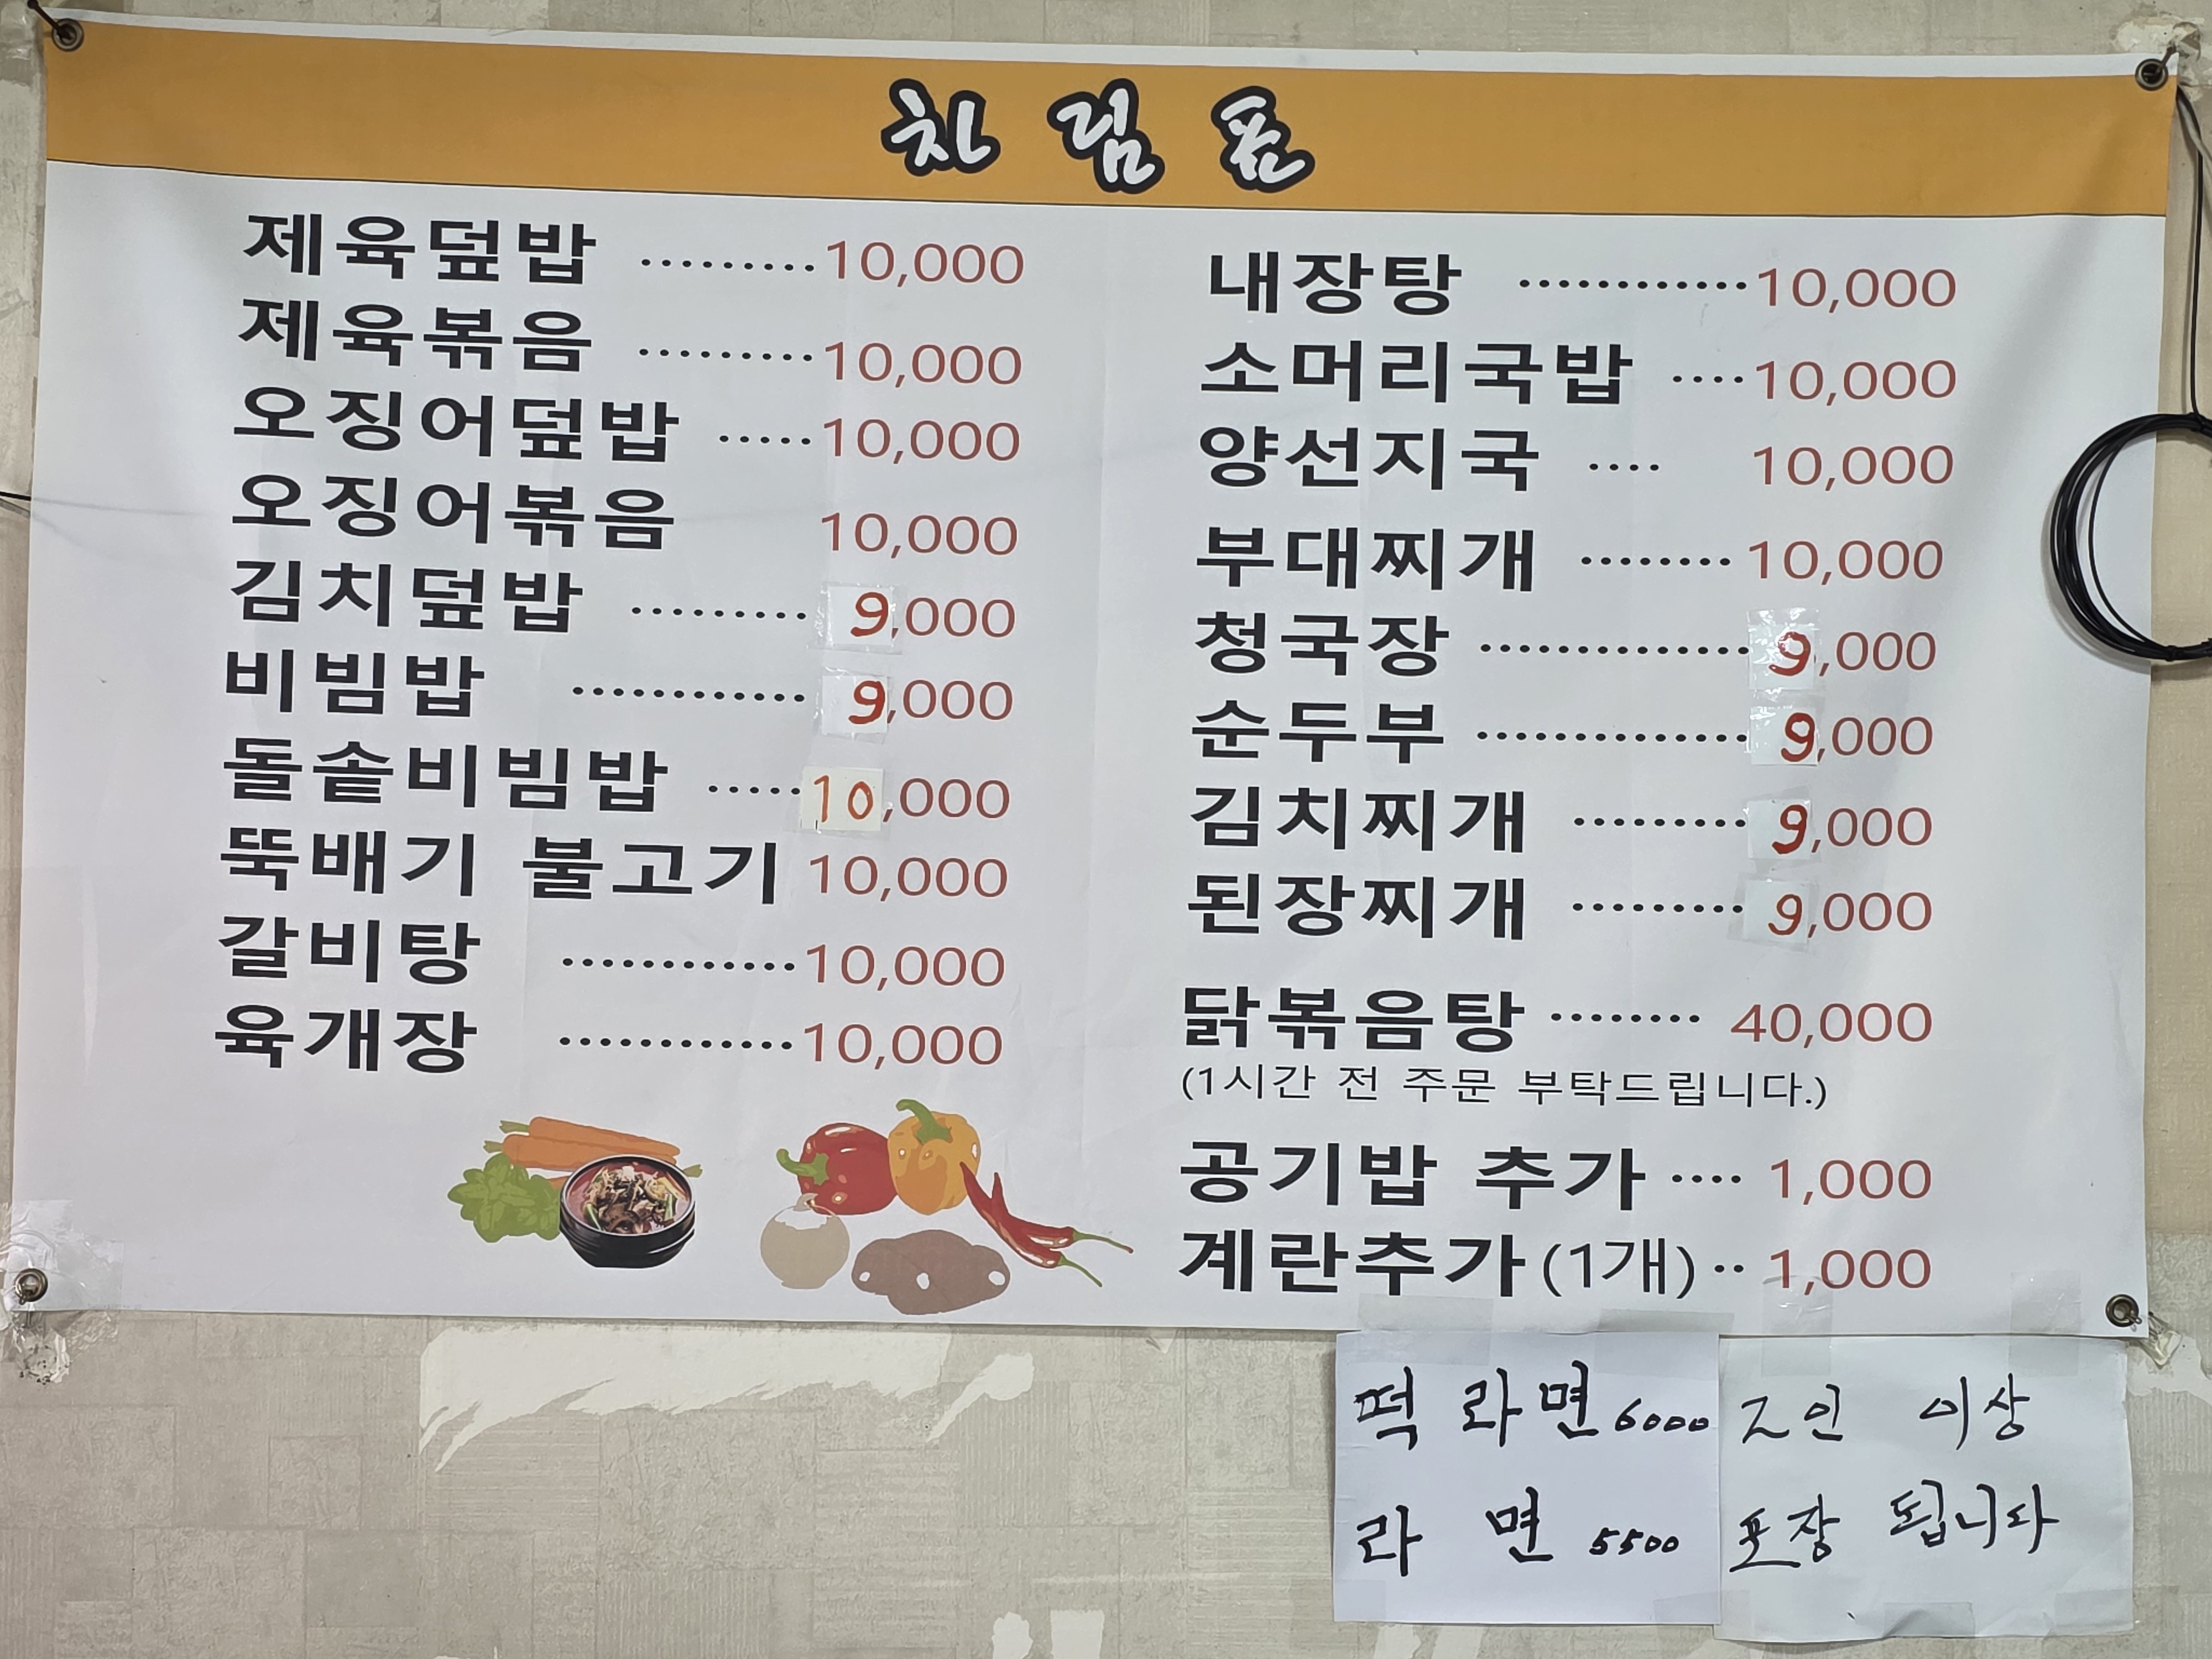 차림표
제육덮밥 ·········10,000
제육볶음 ·········10,000
오징어덮밥 ·····10,000
오징어볶음 10,000
김치덮밥 ·········9,000
비빔밥 ············9,000
돌솥비빔밥 ·····10,000
뚝배기 불고기 10,000
갈비탕 ············10,000
육개장 ············10,000
내장탕 ············10,000
소머리국밥 ····10,000
양선지국 ···· 10,000
부대찌개 ········10,000
청국장 ··············9,000
순두부 ··············9,000
김치찌개 ·········9,000
된장찌개 ·········9,000
닭볶음탕 ········ 40,000
(1시간 전 주문 부탁드립니다.)
공기밥 추가 ···· 1,000
계란추가(1개) ·· 1,000
떡 라면 6000
라 면 5500
2인 이상
포장 됩니다